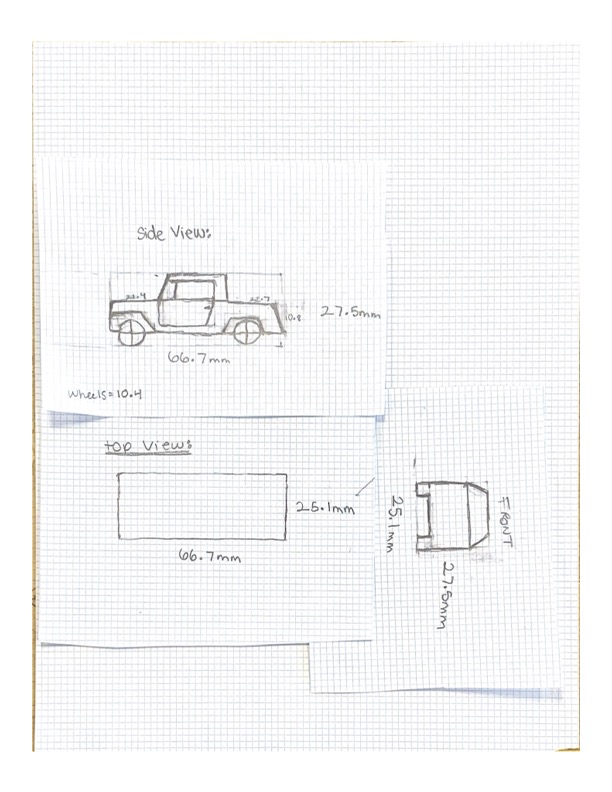 Side View:
22.7
10.8
27.5mm
66.7mm
Wheels=10.4
top View:
25.1mm
66.7mm
FRONT
25.1mm
27.5mm